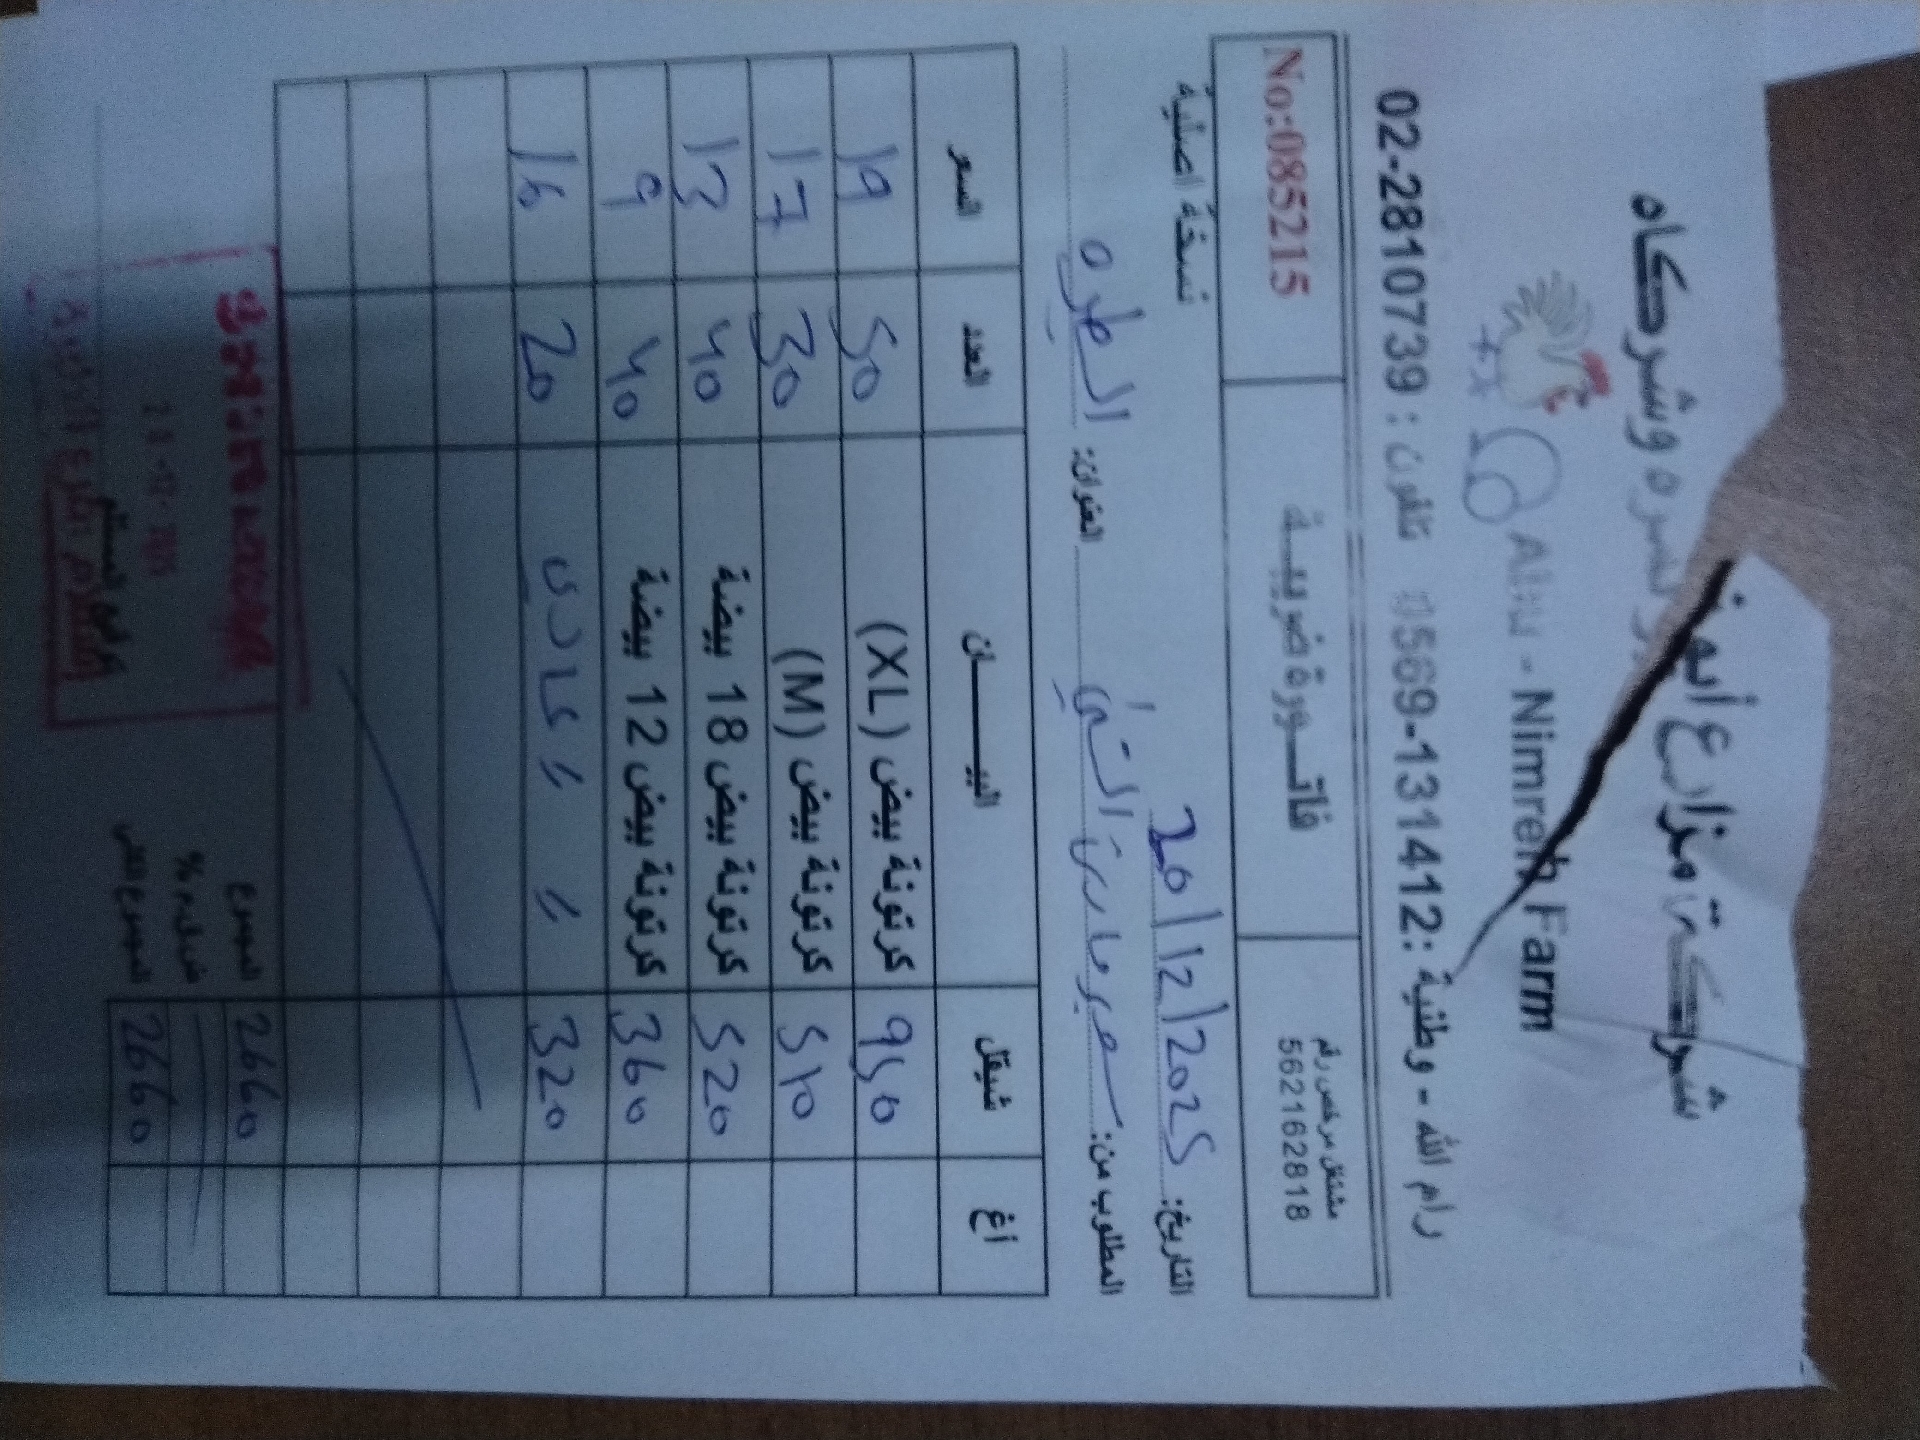 شركة مزارع أبو نمره وشركاه
Abu - Nimreh Farm
رام الله - وطنية: 0569-131412 تلفون: 02-2810739
مشتغل مرخص رقم
562162818
فاتورة ضريبية
No:085215
التاريخ: 20/12/2025
نسخة اصلية
المطلوب من: سوبرماركت العنوان: الطيره
أغ شيقل البيـــــان العدد السعر
950 كرتونة بيض (XL) 50 19
510 كرتونة بيض (M) 30 17
520 كرتونة بيض 18 بيضة 40 13
360 كرتونة بيض 12 بيضة 40 9
320 " " عادي 20 16
المجموع 2660
ض.ق.م %
المجموع الكلي 2660
توقيع المستلم